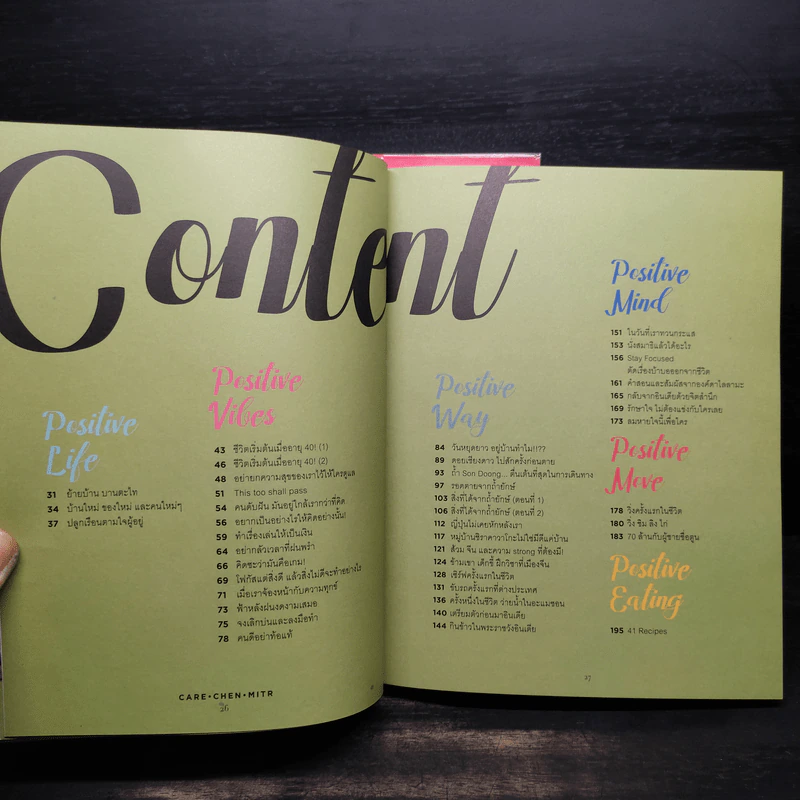 Content
Positive
Life
31 ย้ายบ้าน บานตะไท
34 บ้านใหม่ ของใหม่ และคนใหม่ๆ
37 ปลูกเรือนตามใจผู้อยู่
Positive
Vibes
43 ชีวิตเริ่มต้นเมื่ออายุ 40! (1)
46 ชีวิตเริ่มต้นเมื่ออายุ 40! (2)
48 อย่ายกความสุขของเราไว้ให้ใครดูแล
51 This too shall pass
54 คนดับฝัน มันอยู่ใกล้เรากว่าที่คิด
56 อยากเป็นอย่างไรให้คิดอย่างนั้น!
59 ทำเรื่องเล่นให้เป็นเงิน
64 อย่ากลัวเวลาที่ฝนพรำ
66 คิดซะว่ามันคือเกม!
69 โฟกัสแต่สิ่งดี แล้วสิ่งไม่ดีจะทำอย่างไร
71 เมื่อเราจ้องหน้ากับความทุกข์
73 ฟ้าหลังฝนงดงามเสมอ
75 จงเลิกบ่นและลงมือทำ
78 คนดีอย่าท้อแท้
CARE•CHEN•MITR
26
Positive
Way
84 วันหยุดยาว อยู่บ้านทำไม!!??
89 คอยเชียงดาว ไปสักครั้งก่อนตาย
93 ถ้ำ Son Doong... ตื่นเต้นที่สุดในการเดินทาง
97 รอดตายจากถ้ำยักษ์
103 สิ่งที่ได้จากถ้ำยักษ์ (ตอนที่ 1)
106 สิ่งที่ได้จากถ้ำยักษ์ (ตอนที่ 2)
112 ญี่ปุ่นไม่เคยหักหลังเรา
117 หมู่บ้านชิราคาวาโกะไม่ใช่มีดีแค่บ้าน
121 ส้วม จีน และความ strong ที่ต้องมี!
124 ข้ามเขา เด็กขี้ ฝึกวิชาที่เมืองจีน
128 เซิร์ฟครั้งแรกในชีวิต
131 ขับรถครั้งแรกที่ต่างประเทศ
136 ครั้งหนึ่งในชีวิต ว่ายน้ำในอะแมซอน
140 เตรียมตัวก่อนมาอินเดีย
144 กินข้าวในพระราชวังอินเดีย
Positive
Mind
151 ในวันที่เราทวนกระแส
153 นั่งสมาธิแล้วได้อะไร
156 Stay Focused
ตัดเรื่องบ้าบอออกจากชีวิต
161 คำสอนและสัมผัสจากองค์ดาไลลามะ
165 กลับจากอินเดียด้วยจิตสำนึก
169 รักษาใจ ไม่ต้องแข่งกับใครเลย
173 ลมหายใจนี้เพื่อใคร
Positive
Move
178 วิ่งครั้งแรกในชีวิต
180 วิ่ง ชิม ลิง ไก่
183 70 ล้านกับผู้ชายชื่อตูน
Positive
Eating
195 41 Recipes
27